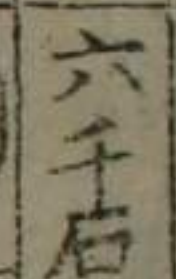 六千石